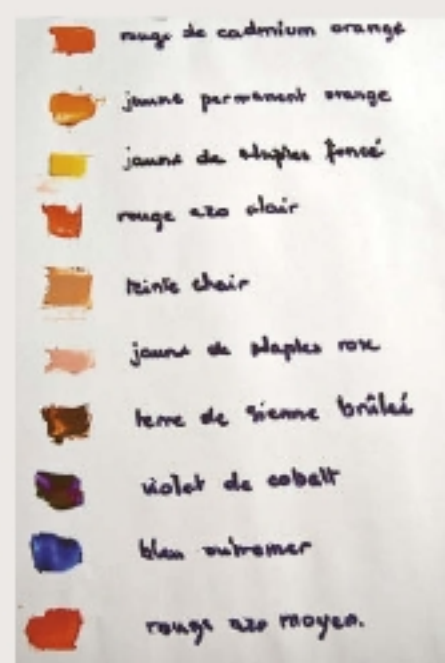 rouge de cadmium orangé
jaune permanent orange
jaune de Naples foncé
rouge azo clair
teinte chair
jaune de Naples rose
terre de Sienne brûlée
violet de cobalt
bleu outremer
rouge azo moyen.